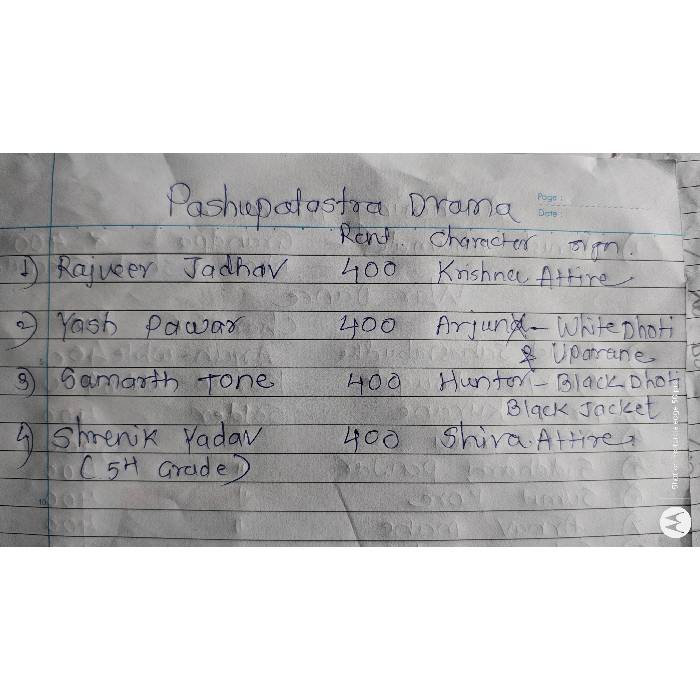 Pashupatastra Drama
Page :
Date :
Rent. Character sign.
1) Rajveer Jadhav 400 Krishna Attire
2) Yash Pawar 400 Arjun - White Dhoti
& Uparane
3) Samarth Tone 400 Hunter - Black Dhoti
Black Jacket
4) Shrenik Yadav 400 Shiva Attire
(5H Grade)